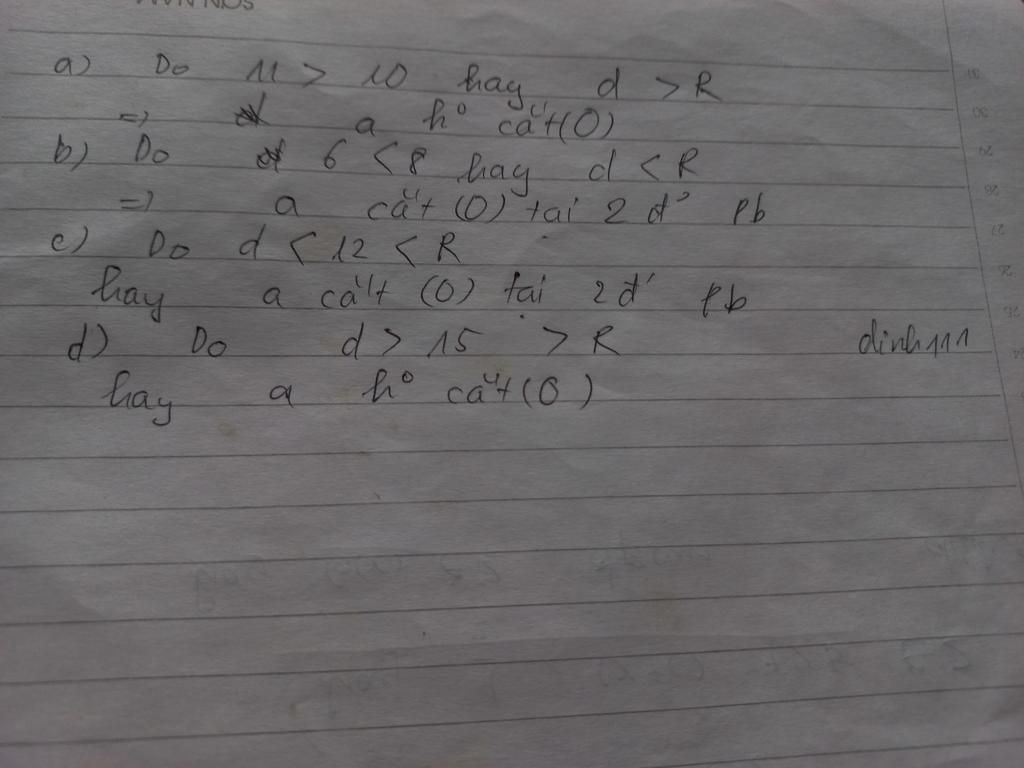 a) Do 11 > 10 hay d > R
=> a ko cắt (O)
b) Do 6 < 8 hay d < R
=> a cắt (O) tại 2 đ' pb
c) Do d < 12 < R
hay a cắt (O) tại 2 đ' pb
d) Do d > 15 > R
dinh111
hay a ko cắt (O)